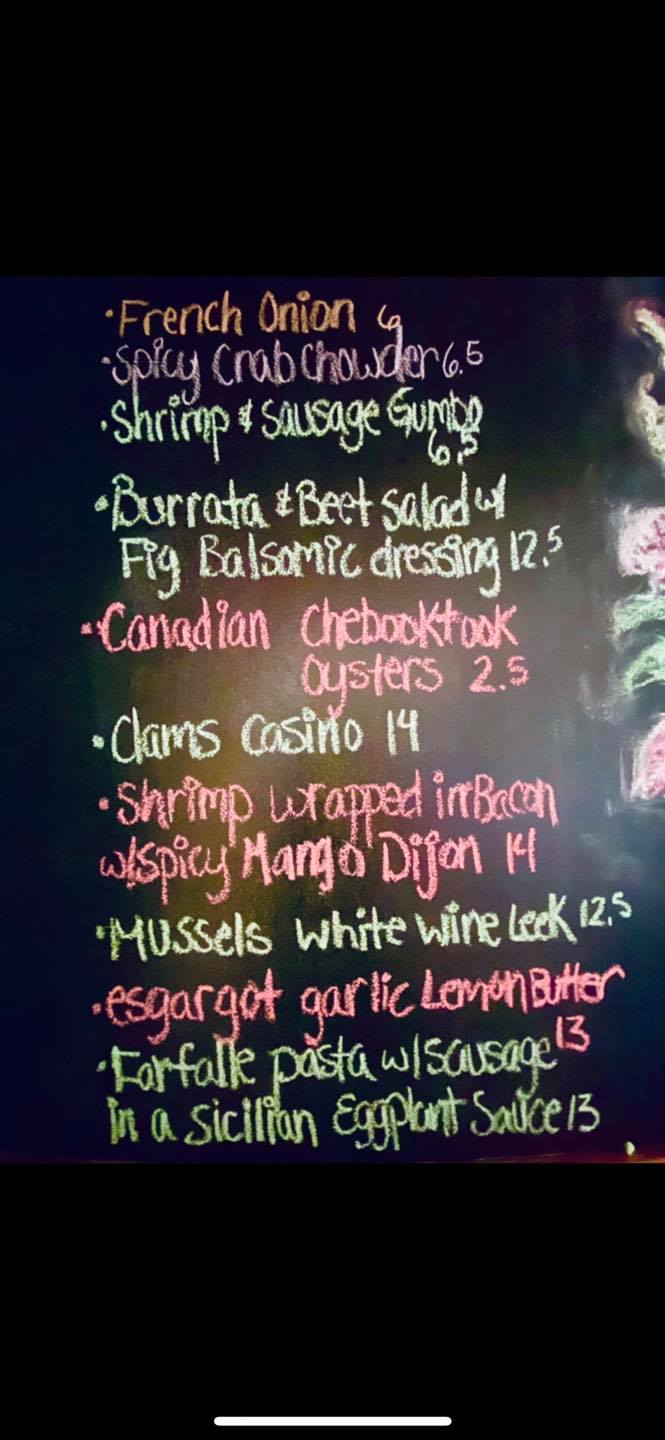 • French Onion 6
• Spicy Crab Chowder 6.5
• Shrimp & Sausage Gumbo
6.5
• Burrata & Beet Salad w/
Fig Balsomic dressing 12.5
• Canadian Chebooktook
Oysters 2.5
• Clams Casino 14
• Shrimp wrapped in Bacon
w/spicy Mango Dijon 14
• Mussels White Wine Leek 12.5
• esgargot garlic Lemon Butter
13
• Farfalle pasta w/sausage
in a Sicilian Eggplant Sauce 13